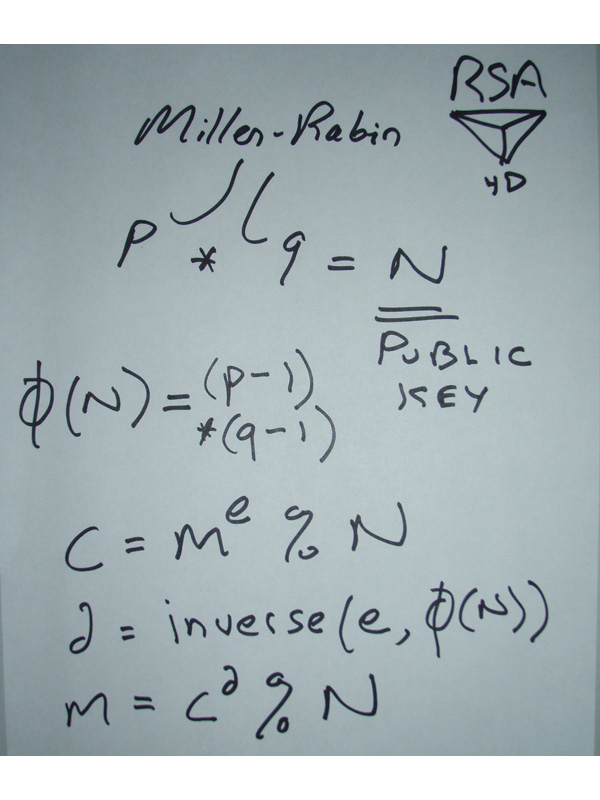 RSA
4D
Miller-Rabin
p * q = N
PUBLIC
KEY
ϕ(N) = (p-1)
*(q-1)
C = m^e % N
d = inverse(e, ϕ(N))
m = c^d % N